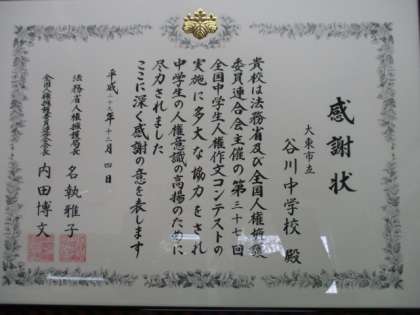 感謝状
大東市立
谷川中学校 殿
貴校は法務省及び全国人権擁護
委員連合会主催の第三十七回
全国中学生人権作文コンテストの
実施に多大な協力をされ
中学生の人権意識の高揚のために
尽力されました
ここに深く感謝の意を表します
平成二十九年十二月四日
法務省人権擁護局長
名執雅子
全国人権擁護委員連合会会長
内田博文